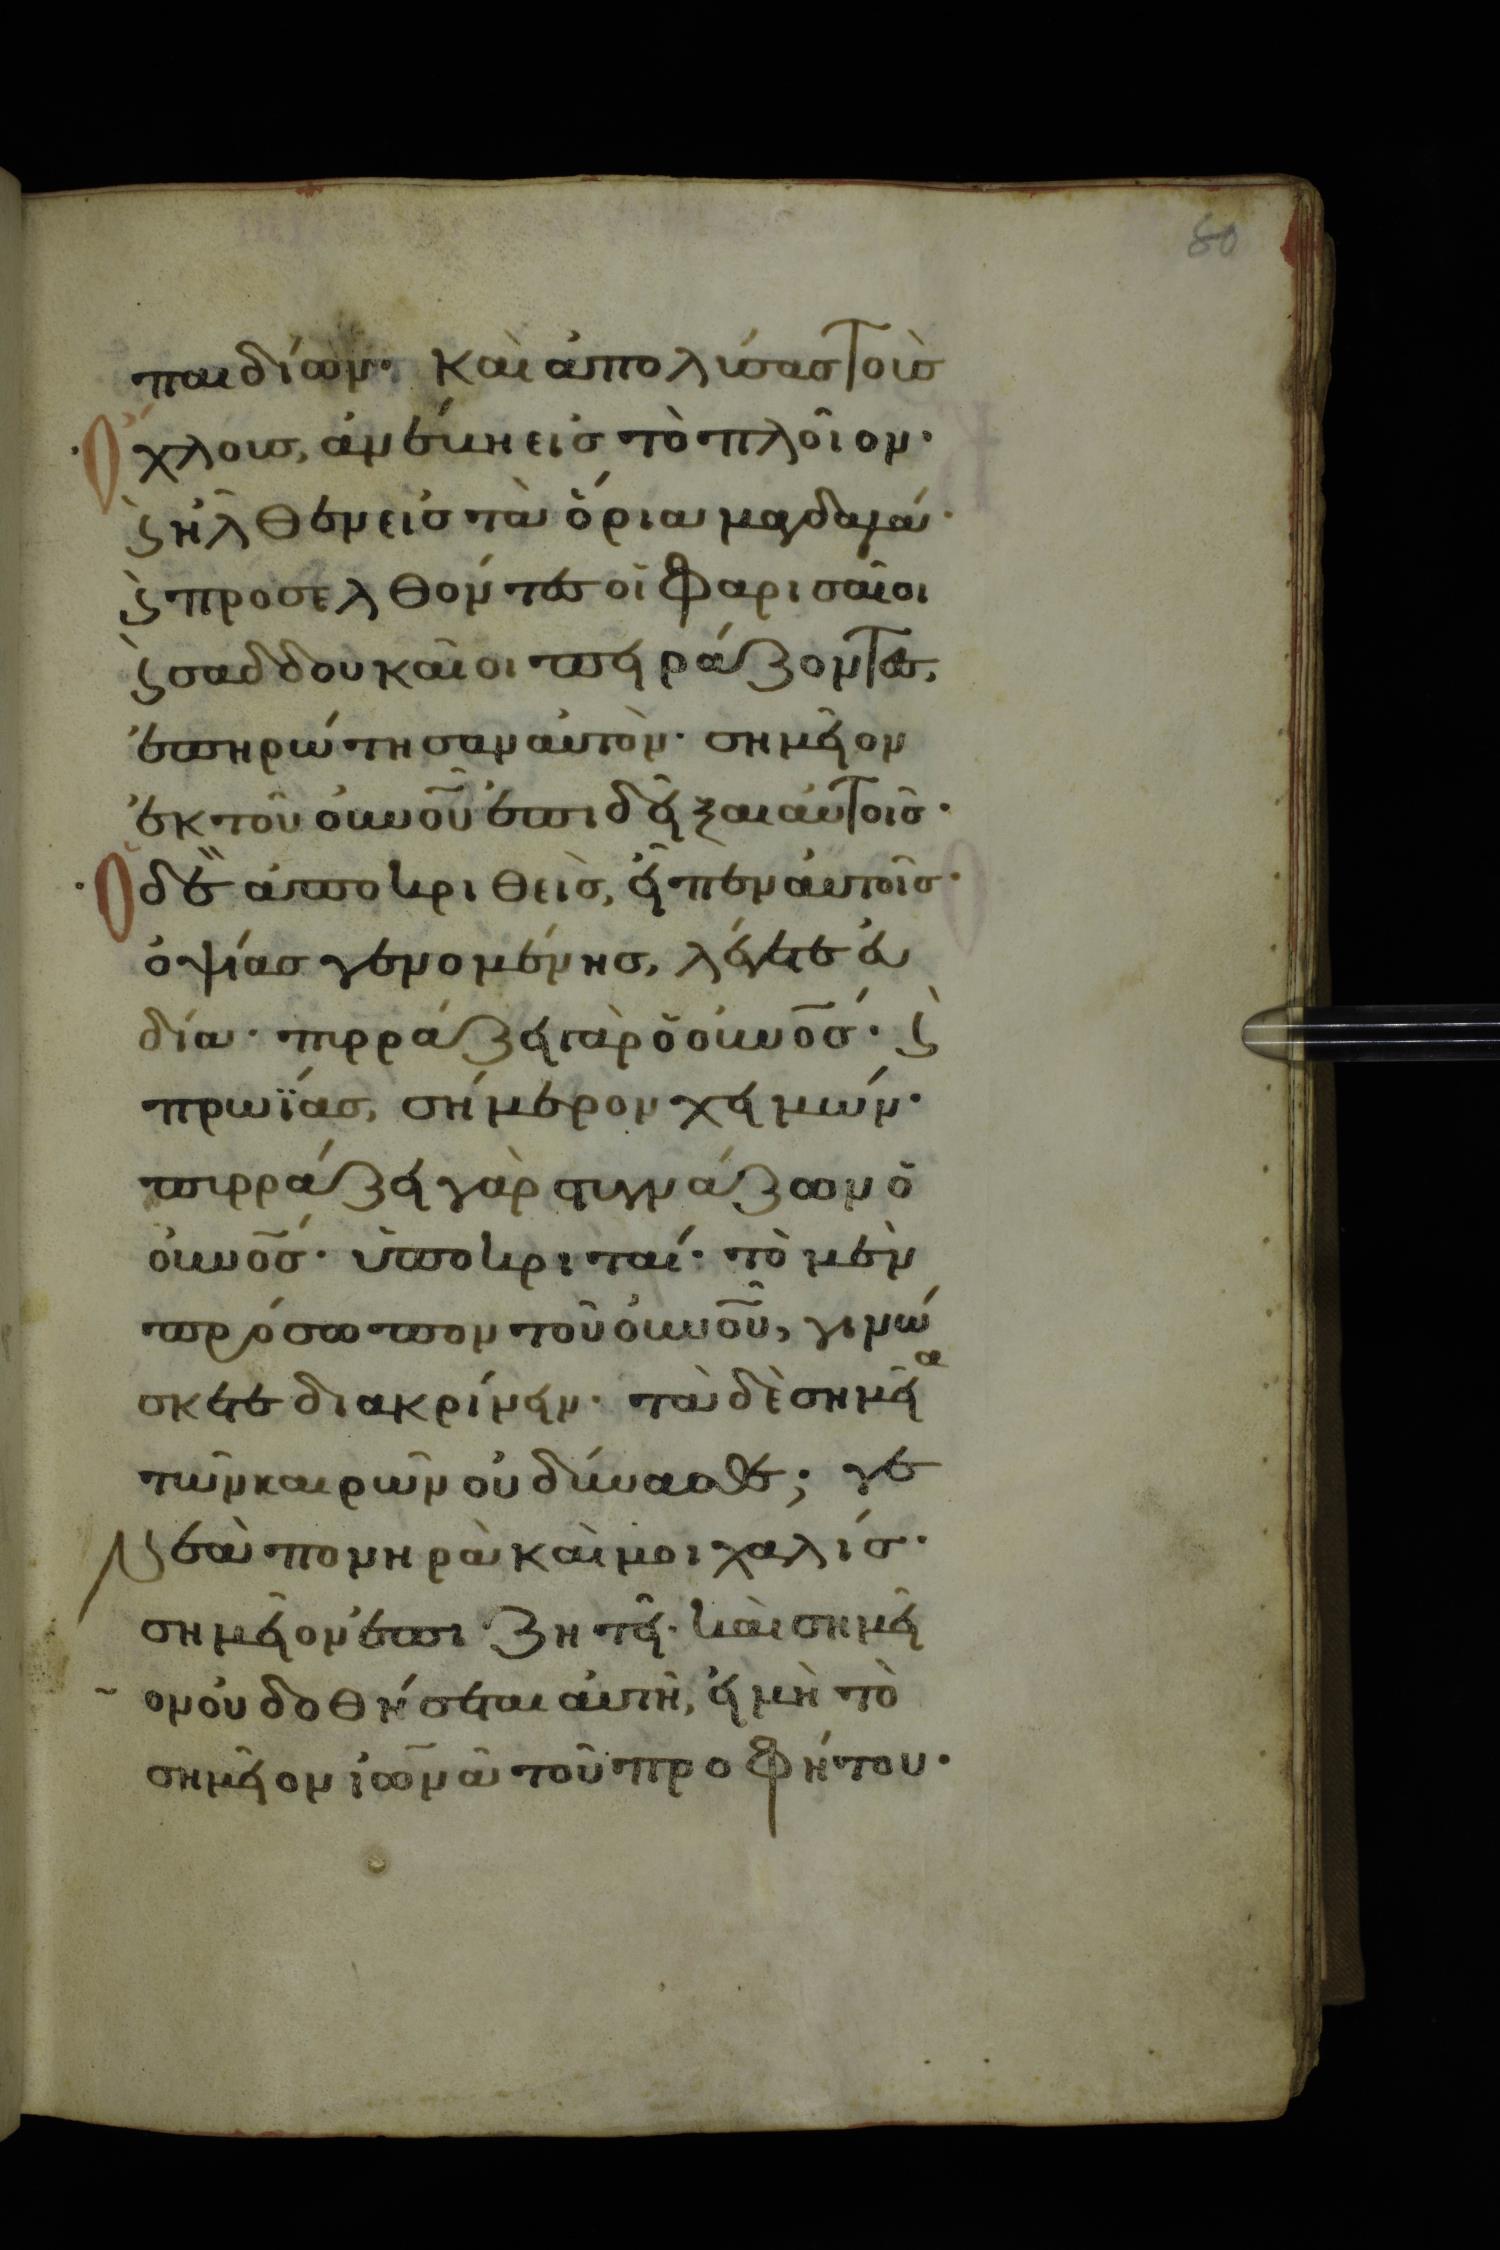 80
παιδίων· Καὶ ἀπολύσας τοὺς
Ὄχλους, ἀνέβη εἰς τὸ πλοῖον·
ϛ ἦλθεν εἰς τὰ ὅρια μαγδαλά·
ϛ προσελθόντες οἱ Φαρισαῖοι
ϛ σαδδουκαῖοι πειράζοντες,
ἐπηρώτησαν αὐτὸν· σημεῖον
ἐκ τοῦ οὐνοῦ ἐπιδεῖξαι αὐτοῖς·
Ὁ δὲ ἀποκριθεὶς, εἶπεν αὐτοῖς·
ὀψίας γενομένης, λέγετε εὐ
δία· πυρράζει γὰρ ὁ οὐνος· ϛ
πρωΐας, σήμερον χειμών·
πυρράζει γὰρ στυγνάζων ὁ
οὐνος· ὑποκριταί· τὸ μὲν
πρόσωπον τοῦ οὐνοῦ, γινώ
σκετε διακρίνειν· τὰ δὲ σημεῖα
τῶν καιρῶν οὐ δύνασθε; γε
νεὰ πονηρὰ καὶ μοιχαλίς·
σημεῖον ἐπιζητεῖ· καὶ σημεῖ
ον οὐ δοθήσεται αὐτῆ, εἰ μὴ τὸ
σημεῖον ἰωνᾶ τοῦ προφήτου·